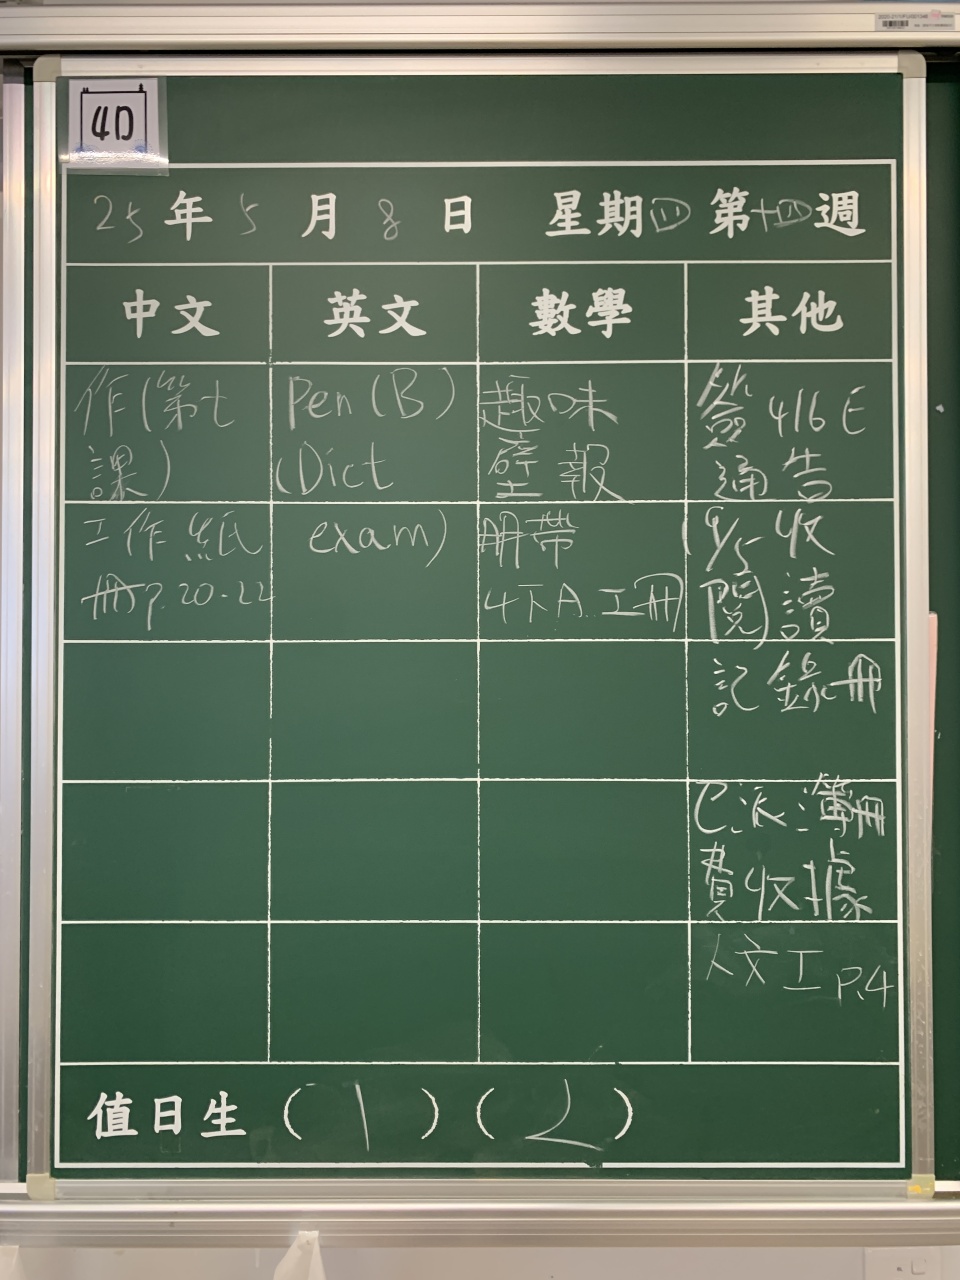 4D
25年5月8日 星期四 第十四週
中文 英文 數學 其他
作(第七
課)
工作紙
冊p.20-22
Pen(B)
(Dict
exam)
趣味
壁報
冊帶
4下A.工冊
簽416E
通告
(9/5收
閱讀
記錄冊
已派簿冊
費收據
人文工P.4
值日生(1)(2)